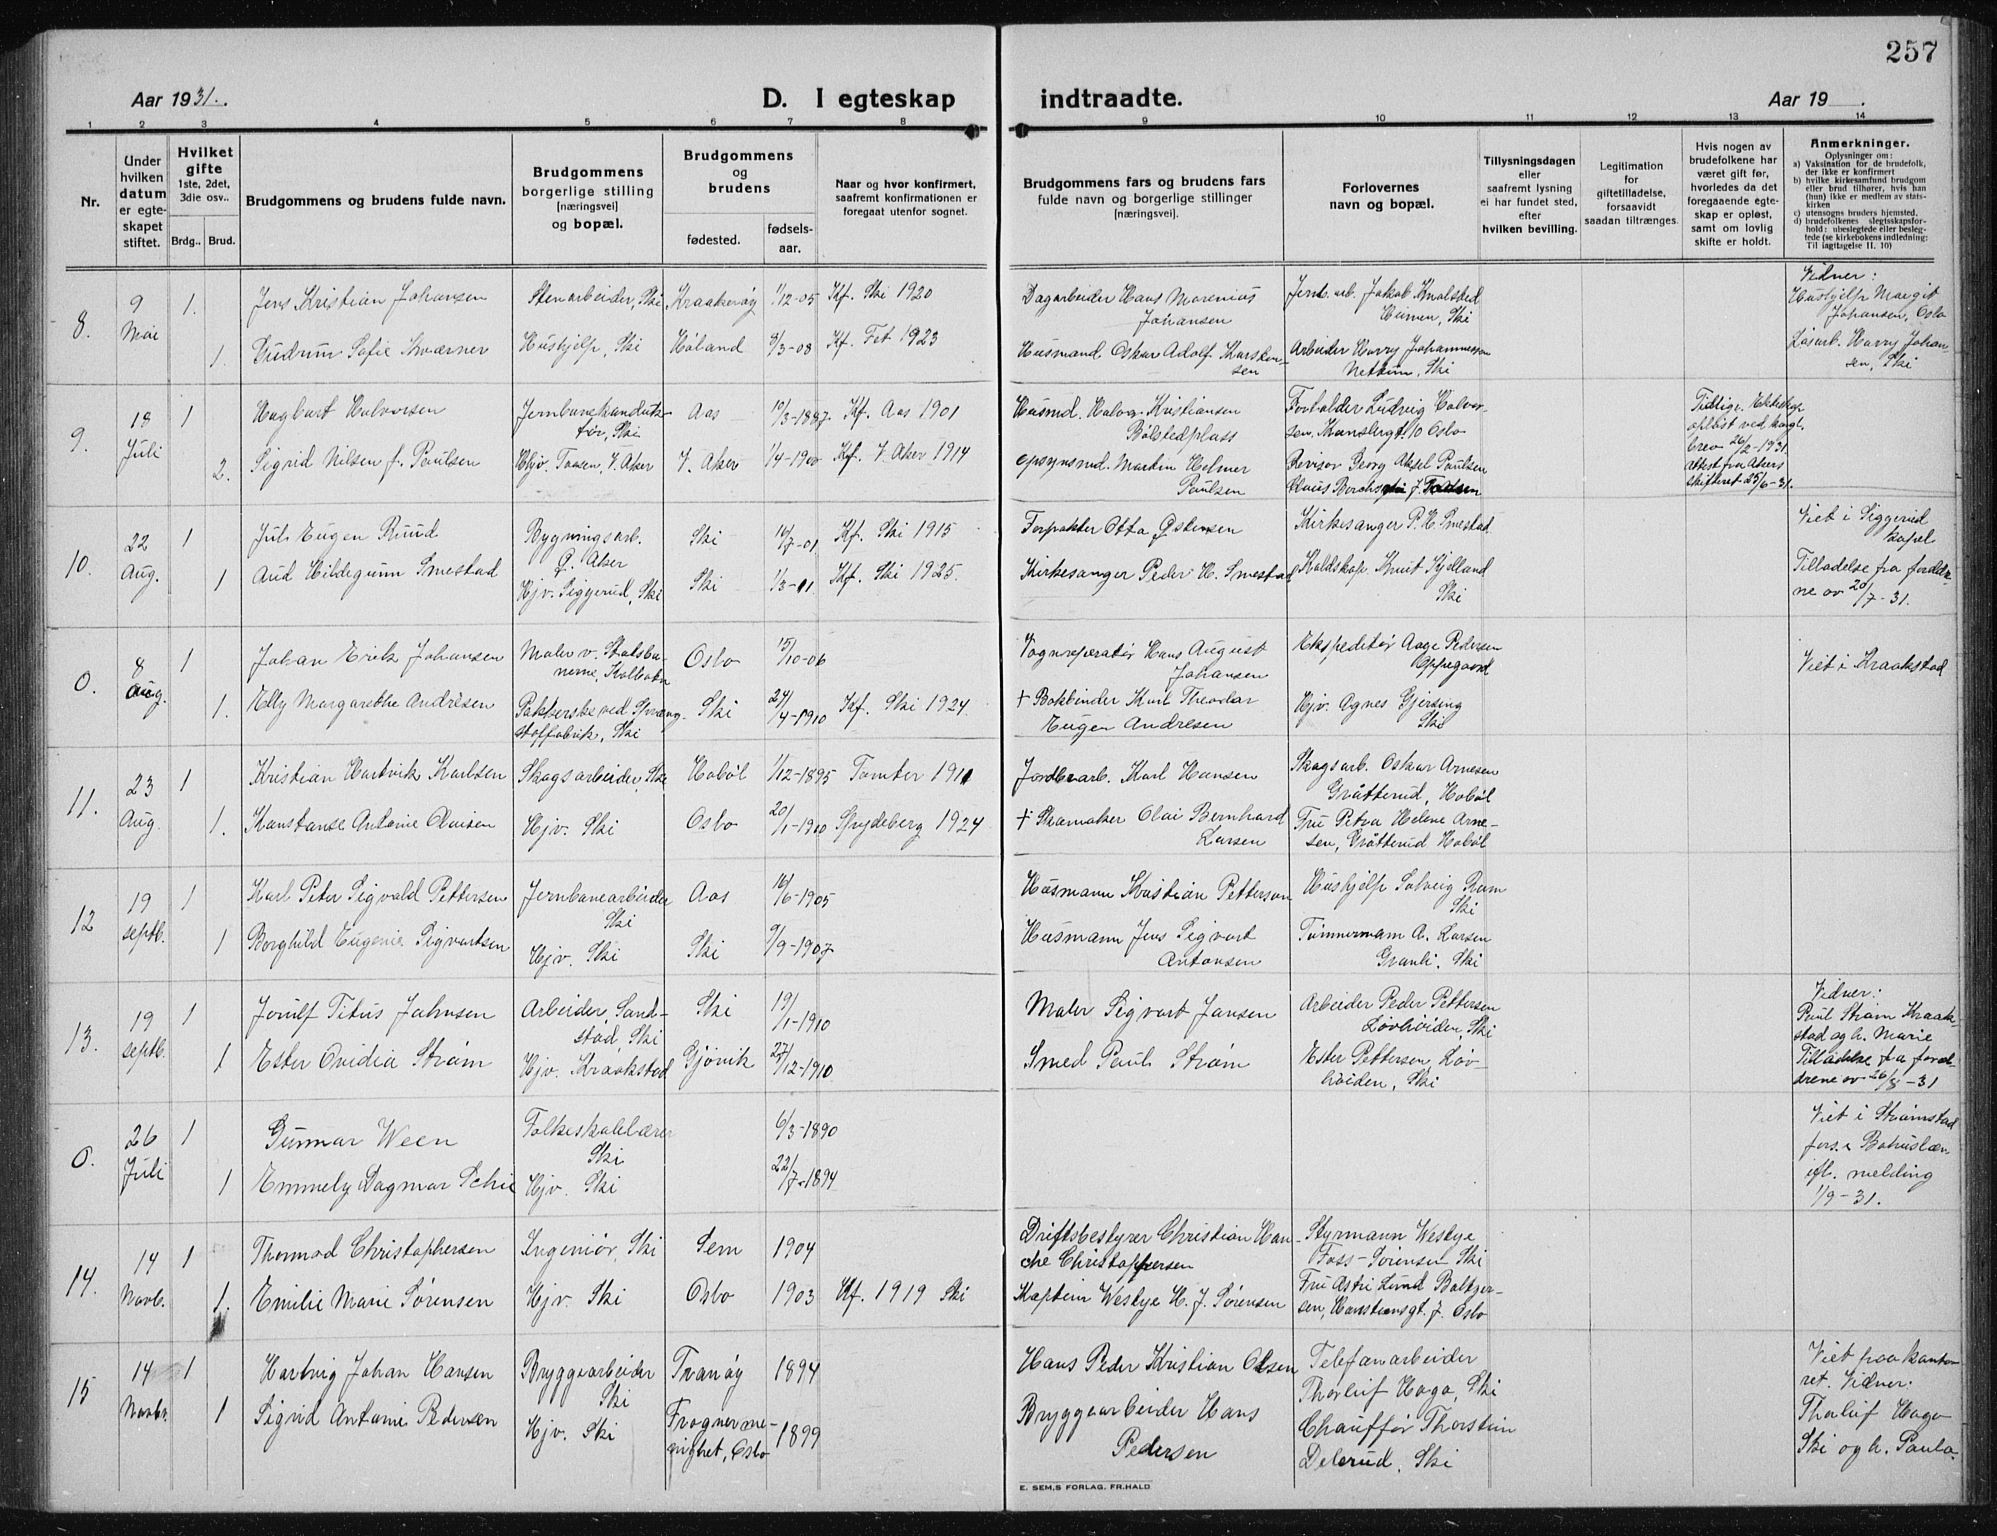 257
Aar 1931.
D. I egteskap
indtraadte.
Aar 19 .
1 2 3 4 5 6 7 8 9 10 11 12 13 14
Nr.
Under
hvilken
datum
er egte-
skapet
stiftet.
Hvilket
gifte
1ste, 2det,
3die osv..
Brdg.. Brud.
Brudgommens og brudens fulde navn.
Brudgommens
borgerlige stilling
[næringsvei]
og bopæl.
Brudgommens
og
brudens
fødested.
fødsels-
aar.
Naar og hvor konfirmert,
saafremt konfirmationen er
foregaat utenfor sognet.
Brudgommens fars og brudens fars
fulde navn og borgerlige stillinger
[næringsvei].
Forlovernes
navn og bopæl.
Tillysningsdagen
eller
saafremt lysning
ei har fundet sted,
efter
hvilken bevilling.
Legitimation
for
giftetilladelse,
forsaavidt
saadan tiltrænges.
Hvis nogen av
brudefolkene har
været gift før,
hvorledes da det
foregaaende egte-
skap er opløst,
samt om lovlig
skifte er holdt.
Anmerkninger.
Oplysninger om:
a) Vaksination for de brudefolk,
der ikke er konfirmert
b) hvilke kirkesamfund brudgom
eller brud tilhører, hvis han
(hun) ikke er medlem av stats-
kirken
c) utensogns bruders hjemsted.
d) brudefolkenes slegtsskapsfor-
hold: ubeslegtede eller besleg-
tede (se kirkebokens indledning:
Til iagttagelse II. 10)
8.
9
Mai
1.
Jens Kristian Johansen
Stenarbeider, Ski
Kraakerøy
1/12-05
Kf. Ski 1920
Dagarbeider Hans Marenius
Johansen
Jernb. arb. Jakob Knalstad
Humen, Ski
Vidner:
Hushjelp Margit
Johansen, Oslo
1.
Gudrun Sofie Kværner
Hushjelp, Ski
Høland
8/3-08
Kf. Fet 1923
Husmand Oskar Adolf Karsten-
sen
Arbeider Harry Johannessen
Nettum, Ski
Harry Johan-
sen, Ski
9.
18
Juli
1
Hagbart Halvorsen
Jernbanekonduk-
tør, Ski
Aas
10/3-1887
Kf. Aas 1901
Husmd. Halvor Kristiansen
Bølstedplass
Forvalder Ludvig Halvor-
sen, Kanslergt. 10 Oslo
Tidligr. Ekteskap
opløst ved kongl.
brev 26/2-1931.
Attest fra Akers
skifteret 25/6-31.
2.
Sigrid Nilsen f. Paulsen
Hjv. Taasen, V. Aker
V. Aker
1/4-1900
Kf. V. Aker 1914
opsynsmd. Martin Helmer
Paulsen
Revisor Georg Aksel Paulsen
10.
22
Aug.
1
Juls Eugen Ruud
Bygningsarb.
Ø. Aker
Ski
10/7-01
Kf. Ski 1915
Forpakter Otto Østensen
Kirkesanger P. H. Smestad
Viet i Siggerud
kapel
1
Aud Hildegunn Smestad
Hjv. Siggerud, Ski
Ski
1/3-11
Kf. Ski 1925.
Kirkesanger Peder H. Smestad
Knut Kjelland
Ski
Tilladelse fra foreldre-
ne av 20/7-31.
0.
8
Aug.
1
Johan Erik Johansen
Maler v. Statsba-
nerne, Kolbotn
Oslo
15/10-06
Vognreperatør Hans August
Johansen
Ekspeditør Aage Pedersen
Oppegaard
Viet i Kraakstad
1.
Elly Margarethe Andrésen
Pakkerske ved Spræng-
stoffabrik, Ski
Ski
24/4-1910
Kf. Ski 1924
+ Bokbinder Karl Theodor
Eugen Andresen
Hjv. Agnes Gjersing
Ski
11.
23
Aug
1
Kristian Hartvik Karlsen
Skogsarbeider, Ski
Hobøl
1/12-1895
Tomter 1911
Jordbr.arb. Karl Hansen
Skogsarb. Oskar Arnesen
Gråtterud, Hobøl
1.
Konstanse Antonie Olaisen
Hjv. Ski
Oslo
20/1-1910
Spydeberg 1924
+ Skomaker Olai Bernhard
Larsen
Fru Petra Helene Arne-
sen, Gråtterud Hobøl
12
19
septb.
1
Karl Peter Sigvald Pettersen
Jernbanearbeider
Ski
Aas
16/6-1905
Husmann Kristian Pettersen
Hushjelp Solveig Ram
Ski
1
Borghild Eugenie Sigvartsen
Hjv. Ski
Ski
9/9-1907
Husmann Jens Sigvart
Antonsen
Tømmermann A. Larsen
Granli, Ski
13.
19
septb.
1
Jorulf Titus Jahnsen
Arbeider, Sand-
stad, Ski
Ski
19/1-1910
Maler Sigvart Jansen
Arbeider Peder Pettersen
Løvhøiden, Ski
Vidner:
Paul Strøm Kraak-
stad og h. Marie
Tilladelse fra forel-
drene av 26/8-31
1
Ester Ovidia Strøm
Hjv. Kraakstad
Gjøvik
27/12-1910
Smed Paul Strøm
Ester Pettersen, Løv-
høiden, Ski
0.
26
Juli
1
Gunnar Ween
Folkeskolelærer
Ski
6/3-1890
Viet i Strømstad
fors. i Bohuslæn
ifl. melding
1/9-31.
1
Emmely Dagmar Schie
Hjv. Ski
22/7-1894
14.
14
Novb.
1
Thormod Christophersen
Ingeniør, Ski
Sem
1904
Driftsbestyrer Christian Han-
che Christophersen
Styrmann Westye
Foss-Sørensen Ski
1.
Emilie Marie Sørensen
Hjv. Ski
Oslo
1903
Kf. 1919 Ski
Kaptein Westye H. J. Sørensen
Fru Astri Lund Baltzer-
sen, Oslo
15
14
Novbr.
1
Hartvig Johan Hansen
Bryggearbeider
Ski
Tranøy
1894
Hans Peder Kristian Olsen
Telefonarbeider
Thorleif Haga, Ski
Viet paa kanto-
ret. Vidner:
Thorleif Haga
Ski og h. Paula.
1
Sigrid Antonie Pedersen
Hjv. Ski
Frognerme-
nighet, Oslo
1899
Bryggearbeider Hans
Pedersen
Chauffør Thorstein
Delerud, Ski
E. SEM,S FORLAG, FR.HALD